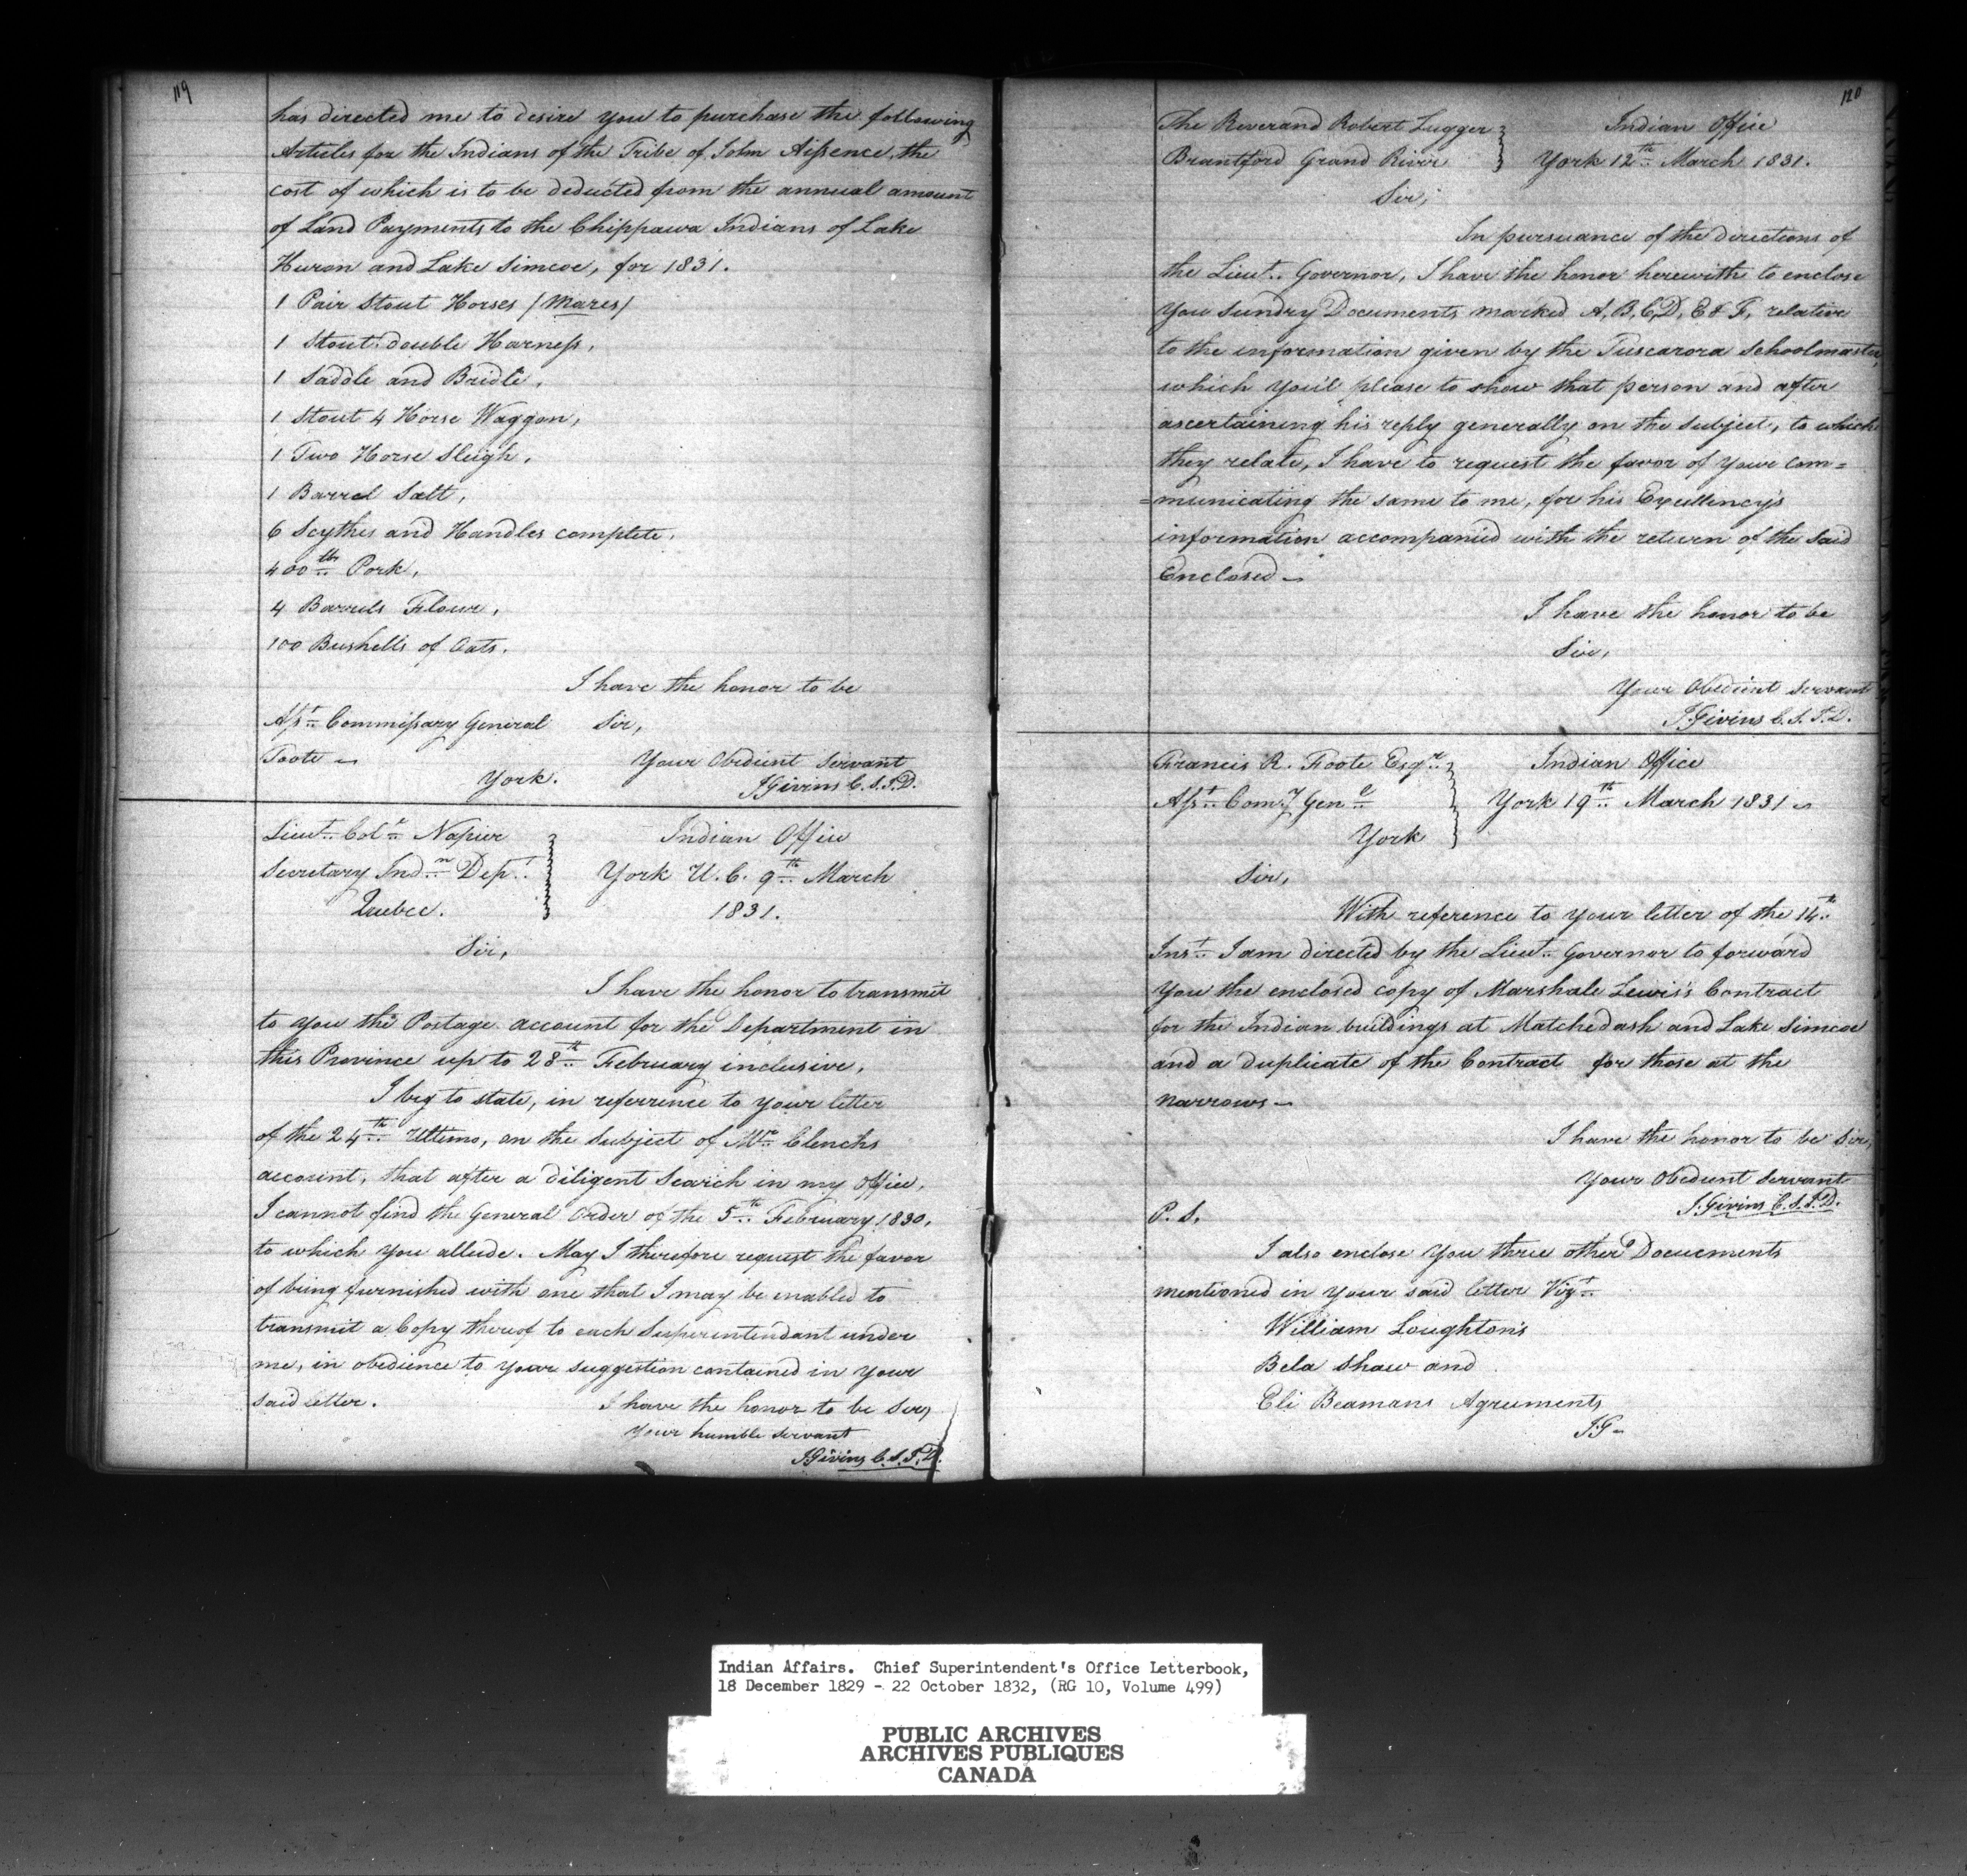 119
has directed me to desire you to purchase the following
Articles for the Indians of the Tribe of John Aissence, the
cost of which is to be deducted from the annual amount
of Land Payments to the Chippawa Indians of Lake
Huron and Lake Simcoe, for 1831.
1 Pair Stout Horses (Mares)
1 Stout double Harness,
1 Saddle and Bridle,
1 Stout 4 Horse Waggon,
1 Two Horse Sleigh,
1 Barrel Salt,
6 Scythes and Handles complete,
400 lbs Pork,
4 Barrels Flour,
100 Bushells of Oats.
I have the honor to be
Asst. Commissary General Sir,
Foote — Your Obedient Servant
York. J Givins C.S.I.D.
Lieut. Colo. Napier Indian Office
Secretary Indn. Dept. York U.C. 9th March
Quebec. 1831.
Sir,
I have the honor to transmit
to you the Postage account for the Department in
this Province up to 28th February inclusive.
I beg to state, in referrence to your letter
of the 24th Ultimo, on the subject of Mr. Clench's
account, that after a diligent Search in my Office,
I cannot find the General Order of the 5th February 1830,
to which you allude. May I therefore request the favor
of being furnished with one that I may be enabled to
transmit a Copy thereof to each Superintendant under
me, in obedience to your suggestion contained in your
said letter. I have the honor to be Sir,
Your humble servant
J Givins C.S.I.D.
120
The Reverand Robert Lugger Indian Office
Brantford Grand River York 12th March 1831.
Sir,
In pursuance of the directions of
the Lieut. Governor, I have the honor herewith to enclose
you sundry Documents marked A, B, C, D, E & F, relative
to the information given by the Tuscarora Schoolmaster,
which you'l please to show that person and after
ascertaining his reply generally on the subject, to which
they relate, I have to request the favor of your com=
=municating the same to me, for his Excellency's
information accompanied with the return of the said
Enclosed —
I have the honor to be
Sir,
Your Obedient Servant
J. Givins C.S.I.D.
Francis R. Foote Esqr. Indian Office
Asst. Comy. Genl. York 19th March 1831 —
York
Sir,
With reference to your letter of the 14th
Inst. I am directed by the Lieut. Governor to forward
you the enclosed copy of Marshale Lewis's Contract
for the Indian buildings at Matchedash and Lake Simcoe
and a duplicate of the Contract for those at the
narrows —
I have the honor to be Sir,
Your Obedient Servant
J. Givins C.S.I.D.
P.S.
I also enclose you three other Documents
mentioned in your said letter Vizt.
William Loughton's
Bela Shaw and
Eli Beamans Agreements
J.G —
Indian Affairs. Chief Superintendent's Office Letterbook,
18 December 1829 - 22 October 1832, (RG 10, Volume 499)
PUBLIC ARCHIVES
ARCHIVES PUBLIQUES
CANADA